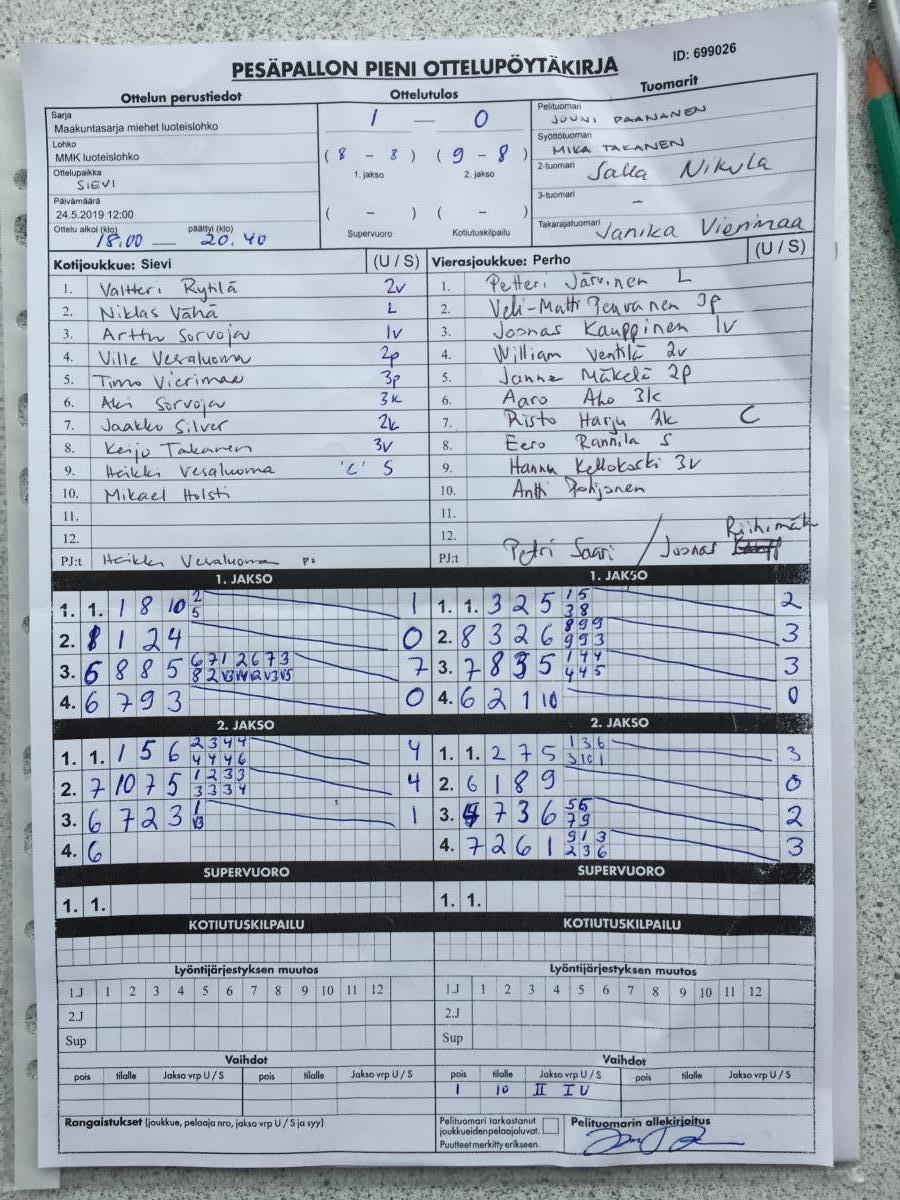 ID: 699026
PESÄPALLON PIENI OTTELUPÖYTÄKIRJA
Ottelun perustiedot
Sarja
Maakuntasarja miehet luoteislohko
Lohko
MMK luoteislohko
Ottelupaikka
SIEVI
Päivämäärä
24.5.2019 12:00
Ottelu alkoi (klo) päättyi (klo)
18.00 — 20.40
Ottelutulos
1 — 0
(8 - 8) (9 - 8)
1. jakso 2. jakso
( - ) ( - )
Supervuoro Kotiutuskilpailu
Tuomarit
Pelituomari
JOUNI PAANANEN
Syöttötuomari
MIKA TAKANEN
2-tuomari
Salla Nikula
3-tuomari
-
Takarajatuomari
Janika Vierimaa
Kotijoukkue: Sievi (U / S)
1. Valtteri Rytilä 2v
2. Niklas Vähä L
3. Arttu Sorvoja 1v
4. Ville Vesaluoma 2p
5. Timo Vierimaa 3p
6. Aki Sorvoja 3k
7. Jaakko Silver 2k
8. Keijo Takanen 3v
9. Heikki Vesaluoma 'C' S
10. Mikael Holsti
11.
12.
PJ:t Heikki Vesaluoma
Vierasjoukkue: Perho (U / S)
1. Petteri Järvinen L
2. Veli-Matti 3p
3. Joonas Kauppinen 1v
4. William Ventilä 2v
5. Janne Mäkelä 2p
6. Aaro Aho 3k
7. Risto Harju 2k C
8. Eero Rannila S
9. Hannu Kellokoski 3v
10. Antti Pohjonen
11.
12.
PJ:t Petri Saari / Joonas Riihimäki
1. JAKSO
1. 1. 1 8 10 2 1
5
2. 8 1 2 4 0
3. 6 8 8 5 6 7 1 2 6 7 3 7
4. 6 7 9 3 0
1. JAKSO
1. 1. 3 2 5 1 5 2
3 8
2. 8 3 2 6 8 9 9 3
9 9 3
3. 7 8 3 5 1 4 4 3
4 4 5
4. 6 2 1 10 0
2. JAKSO
1. 1. 1 5 6 2 3 4 4 4
4 4 4 6
2. 7 10 7 5 1 2 3 3 4
3 3 3 4
3. 6 7 2 3 1 1
V3
4. 6
2. JAKSO
1. 1. 2 7 5 1 3 6 3
3 10 1
2. 6 1 8 9 0
3. 4 7 3 6 5 6 2
7 9
4. 7 2 6 1 9 1 3 3
2 3 6
SUPERVUORO
1. 1.
SUPERVUORO
1. 1.
KOTIUTUSKILPAILU
KOTIUTUSKILPAILU
Lyöntijärjestyksen muutos
1.J 1 2 3 4 5 6 7 8 9 10 11 12
2.J
Sup
Lyöntijärjestyksen muutos
1.J 1 2 3 4 5 6 7 8 9 10 11 12
2.J
Sup
Vaihdot
pois tilalle Jakso vrp U / S pois tilalle Jakso vrp U / S
Vaihdot
pois tilalle Jakso vrp U / S pois tilalle Jakso vrp U / S
1 10 II IV
Rangaistukset (joukkue, pelaaja nro, jakso vrp U / S ja syy)
Pelituomari tarkastanut
joukkueiden pelaajaluvat.
Puutteet merkitty erikseen.
Pelituomarin allekirjoitus